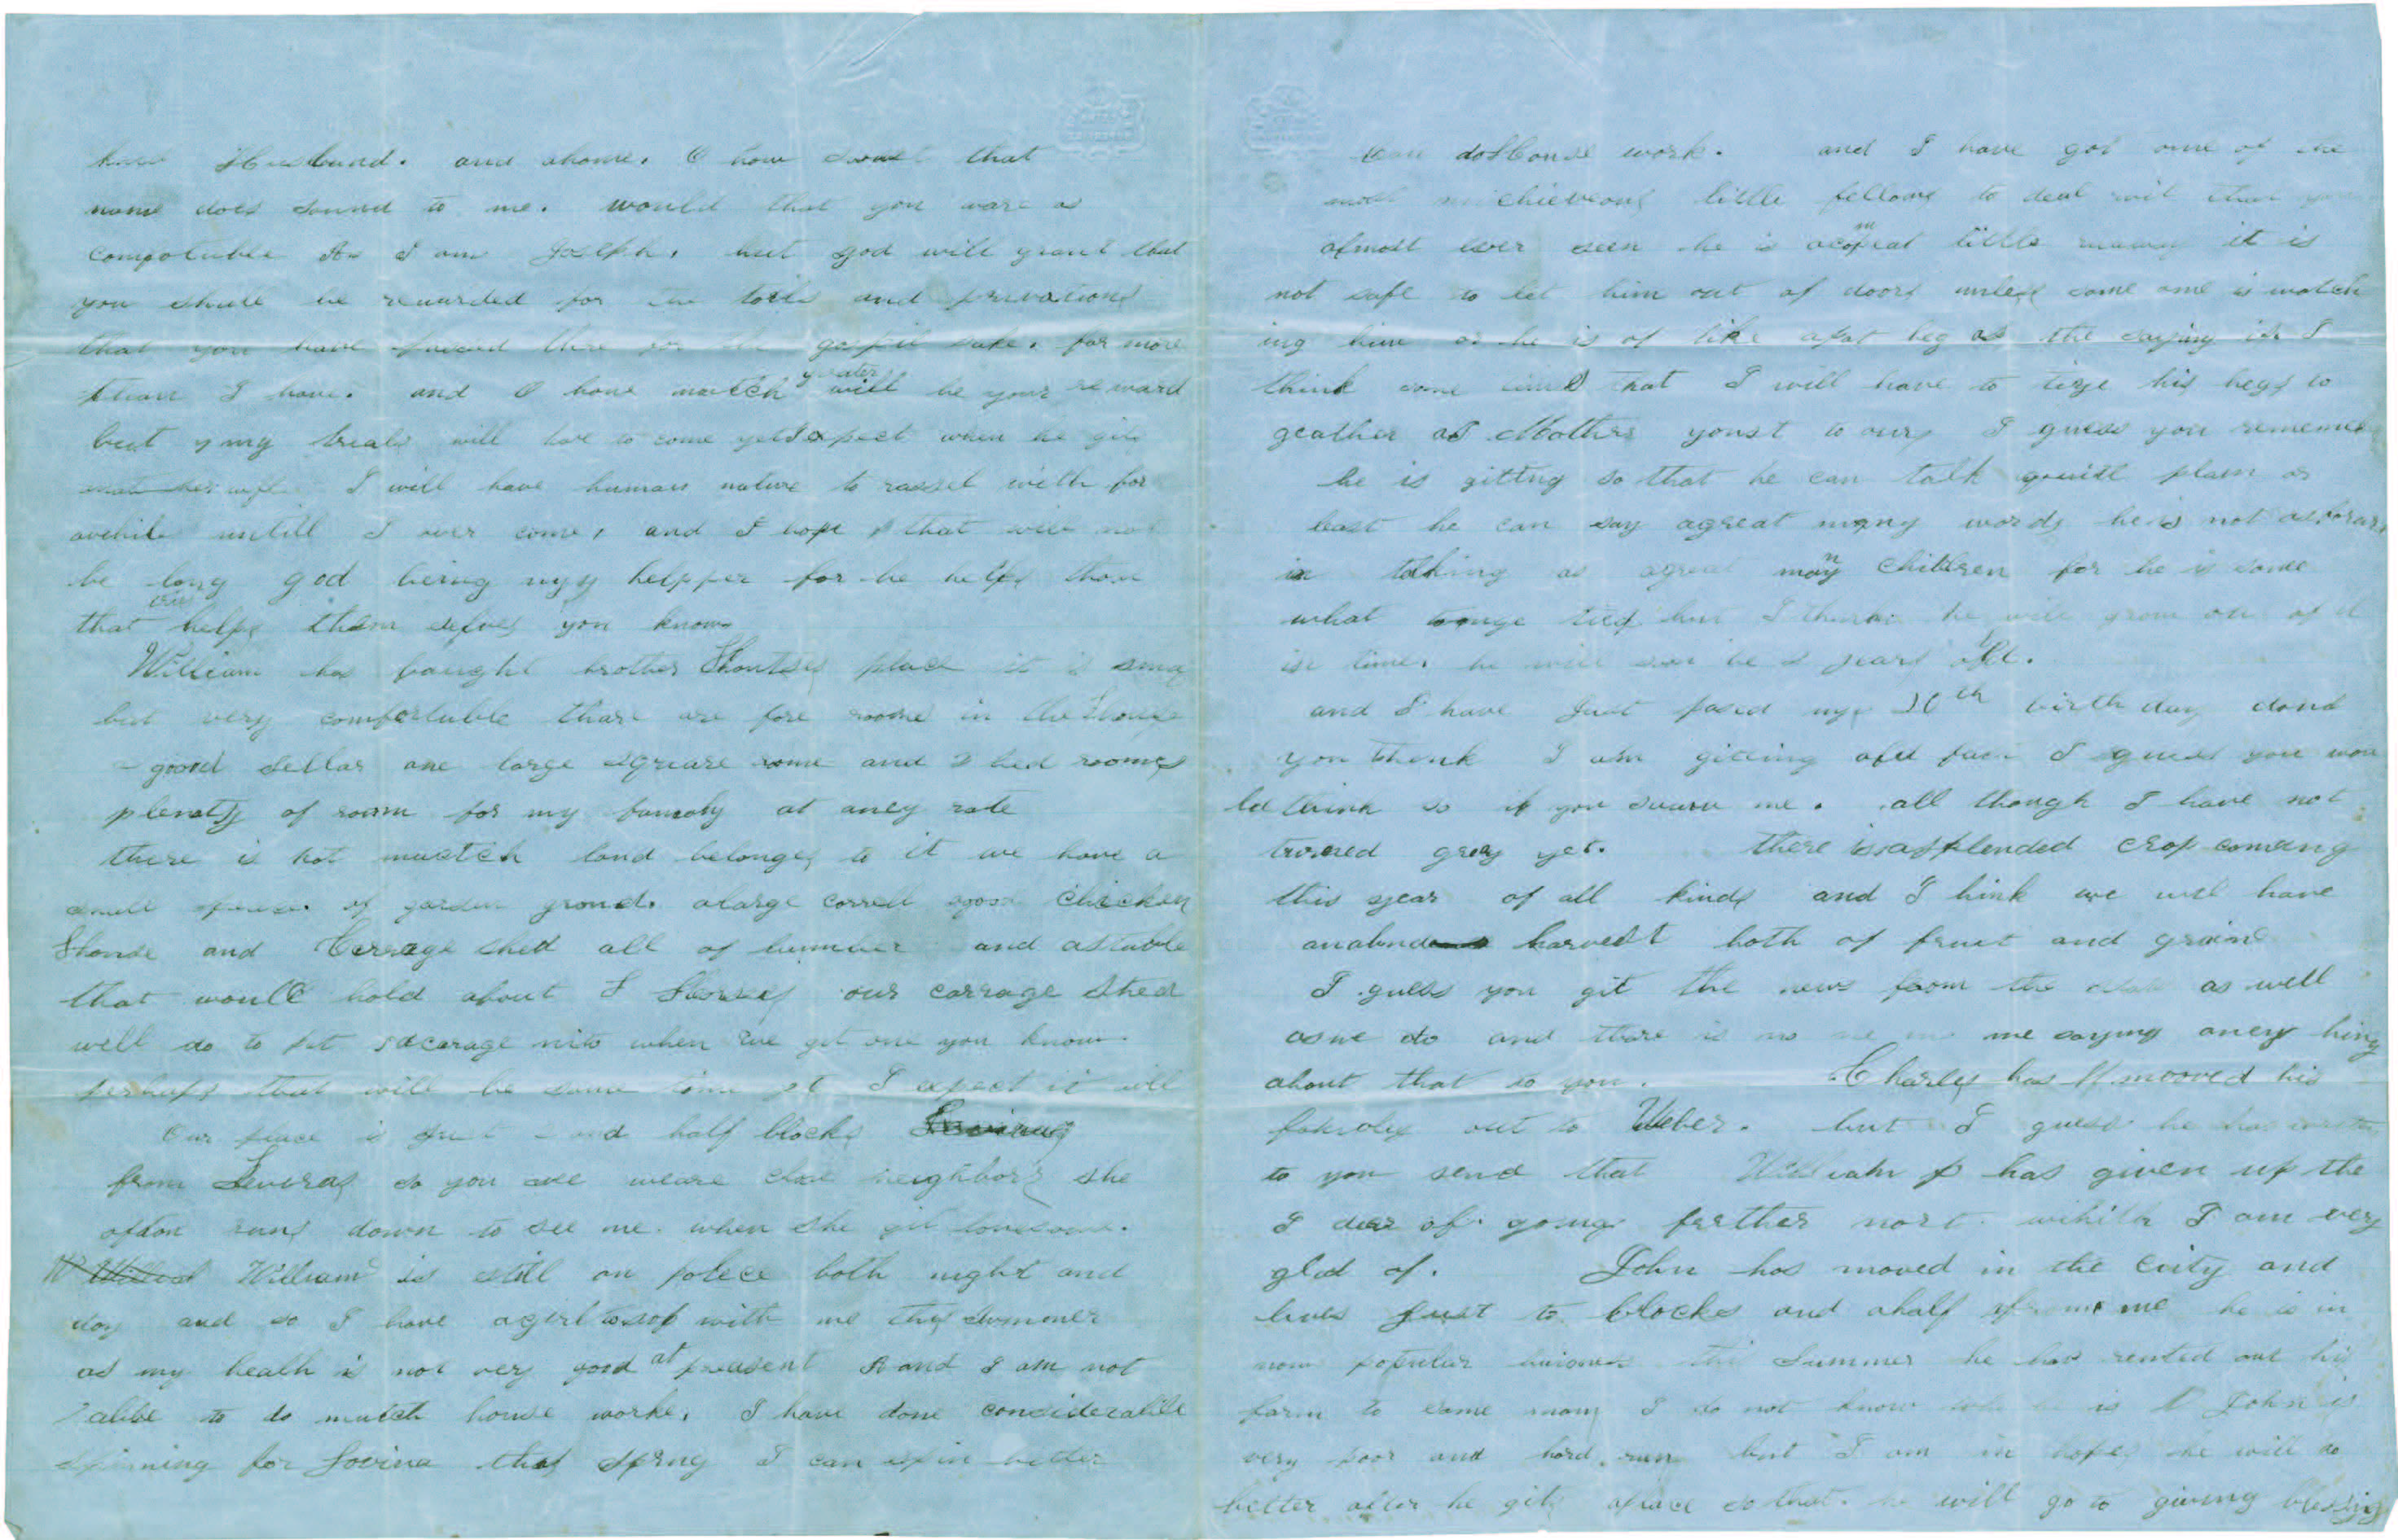 kind Husband. and ahome. O how sweet that
name does sound to me. would that you ware as
compotuble As I am Joseph. but god will grant that
you shall be rewarded for the toils and privations
that you have for the gospil sake. far more
than I have. and O how mutch greater will be your reward
but my trials will have to come yet I expect when he gits
I will have human nature to rassel with for
awhile untill I over come, and I hope that will not
be long god being myy helpper for he helps them
that trys helps them selves you know
William has baught brother Shontsis place it is smal
but very comfortuble thare are fore rooms in the House
a good sellar one large squeare rome and 2 bed rooms
plenaty of room for my famoly at aney rate
there is not muctch land belonges to it we have a
small of garden grond. alarge correll agood Chicken
Honse and Cerrage shed all of lumber and astable
that woull hold about Horses our carrage shed
will do to put acarage into when we get one you know.
perhaps that will be some time yet I expect it will
Our place is just 2 and half blocks
from Loveras so you see weare close neighbors she
often runs down to see me when she git lonesome.
William is still on polece both night and
day and so I have agirl to stop with me this summer
as my healh is not very good at preasent and I am not
able to do mutch house worke. I have done considerable
spinning for Lovina thas spring I can spin better
than do Honse work. and I have got one of the
most michieveous little fellows to deal with than you
almost ever seen he is acompleat little it is
not safe to let him out of doors unless some one is watch
ing him or he is of like apot leg as the saying is I
think some times that I will have to tige his legs to
geather as Mother yonst to ours I guess you rememer
he is gitting so that he can talk quiitt plain or
least he can say agreat many words he is not asforard
in talking as agreat many Children for he is some
what tonge tied but I think he will grow out of it
in time. he will soon be 2 years old.
and I have Just pased my 30th birth day dond
you think I am gitting old fast I guess you wou
ld think so if you sawn me. all though I have not
turned gray yet. there is asplended crop comeing
this year of all kinds and I hink we will have
anabnd harvest both of fruit and grain
I guess you git the news from the as well
as we do and there is no me saying aney hing
about that to you. Charley has mooved his
famoly out to Weber. but I guess he has
to you send that William has given up the
I dear of going farther nort which I am very
glad of. John has moved in the City and
lives Just to blocks and ahalf from me he is in
now the Summer he has rented out his
farm to some man I do not know who he is John is
very poor and hard run but I am in hopes he will do
better after he gits aplace so that he will go to giving blessing